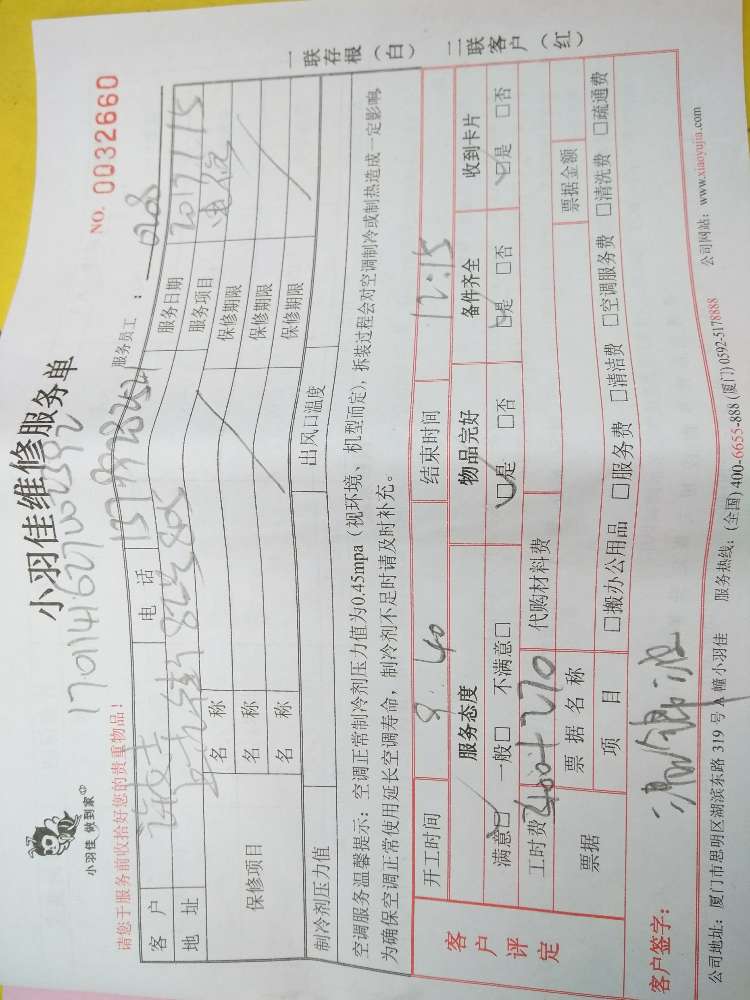 小羽佳 做到家
小羽佳维修服务单
NO. 0032660
请您于服务前收拾好您的贵重物品!
服务员工：
客户 电话 服务日期 2017.1.15
地址 服务项目
保修项目 名称 保修期限
名称 保修期限
名称 保修期限
制冷剂压力值 出风口温度
空调服务温馨提示：空调正常制冷剂压力值为0.45mpa（视环境、机型而定），拆装过程会对空调制冷或制热造成一定影响，
为确保空调正常使用延长空调寿命，制冷剂不足时请及时补充。
一联存根（白） 二联客户（红）
客户评定
开工时间 结束时间 12:15
服务态度 物品完好 备件齐全 收到卡片
满意□ 一般□ 不满意□ □是 □否 □是 □否 □是 □否
工时费 代购材料费
票据 票据名称 票据金额
项目 □搬办公用品 □服务费 □清洁费 □空调服务费 □清洗费 □疏通费
客户签字：
公司地址：厦门市思明区湖滨东路 319 号 A 幢小羽佳 服务热线：(全国) 400-6655-888 (厦门) 0592-3178888 公司网站：www.xiaoyujia.com